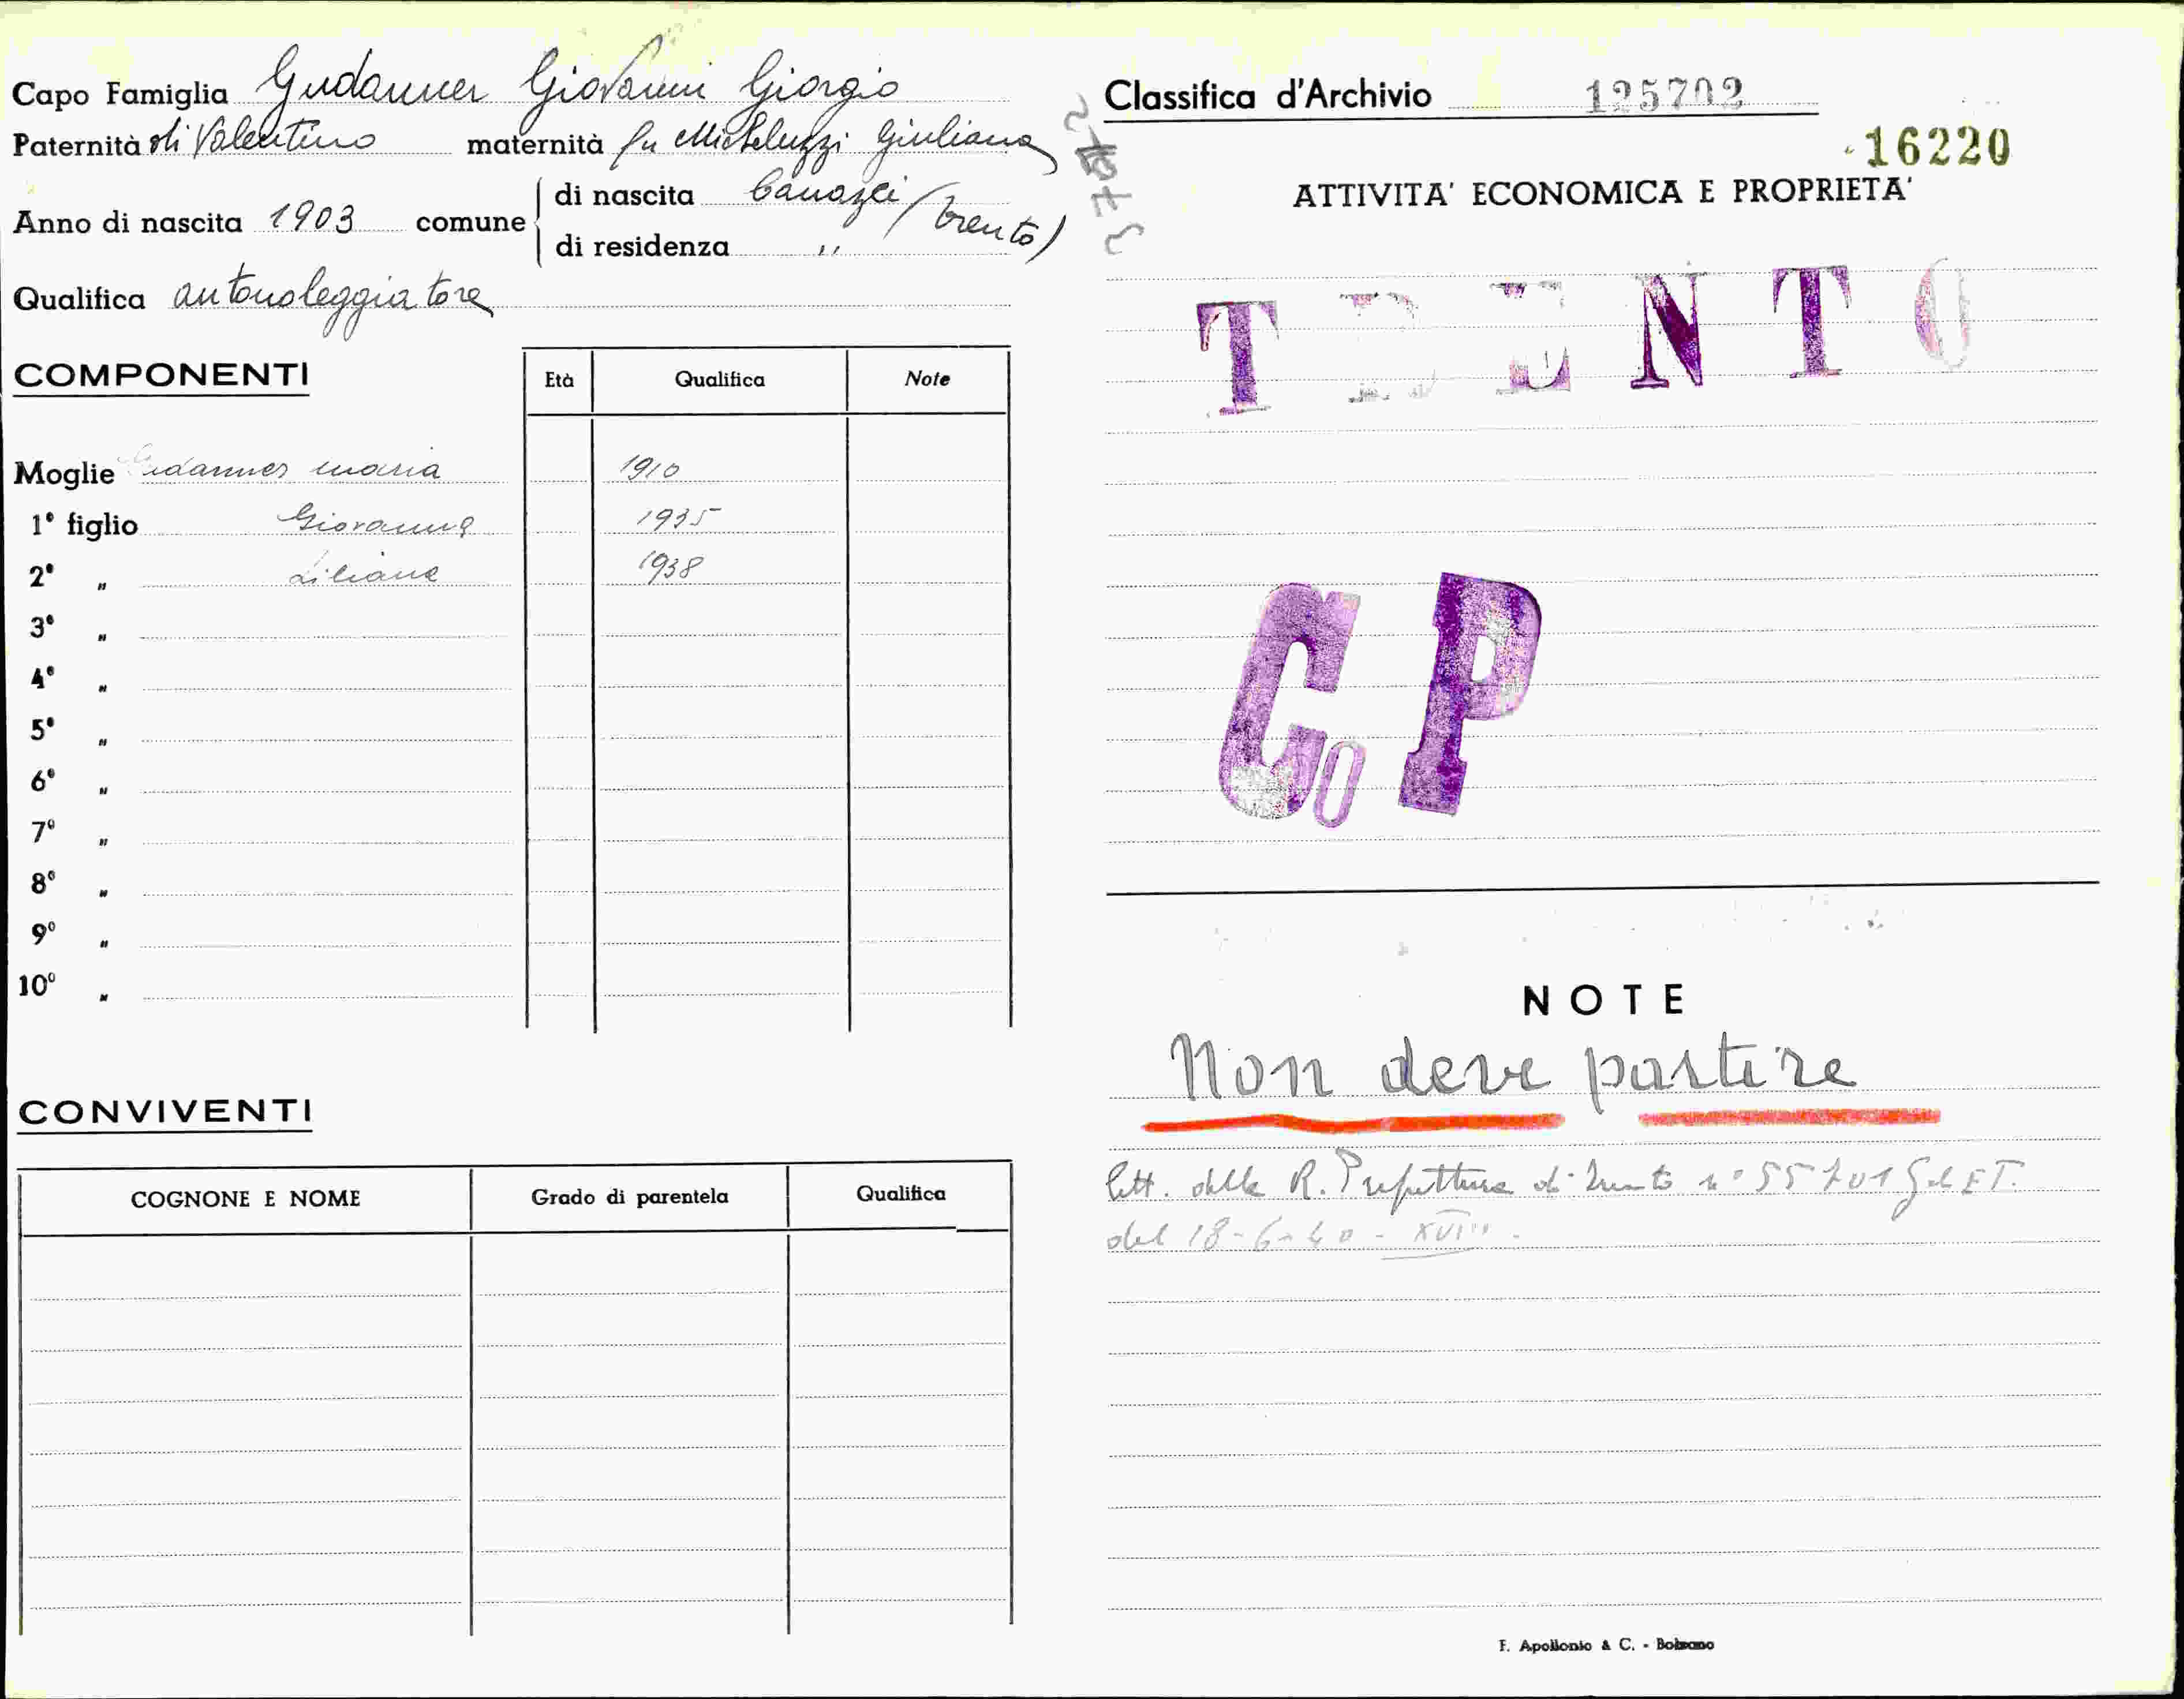 Capo Famiglia Gudauner Giovanni Giorgio
Paternità di Valentino maternità fu Micheluzzi Giuliana
Anno di nascita 1903 comune di nascita Canazei (Trento)
di residenza "
Qualifica autonoleggiatore
COMPONENTI Età Qualifica Note
Moglie Gudauner Maria 1910
1° figlio Giovanna 1935
2° " Liliana 1938
3° "
4° "
5° "
6° "
7° "
8° "
9° "
10° "
CONVIVENTI
COGNONE E NOME Grado di parentela Qualifica
Classifica d'Archivio 125702
16220
ATTIVITA' ECONOMICA E PROPRIETA'
TRENTO
Co P
NOTE
Non deve partire
lett. della R. Prefettura di Trento n°
del 18-6-40 - XVIII -
F. Apollonio & C. - Bolzano